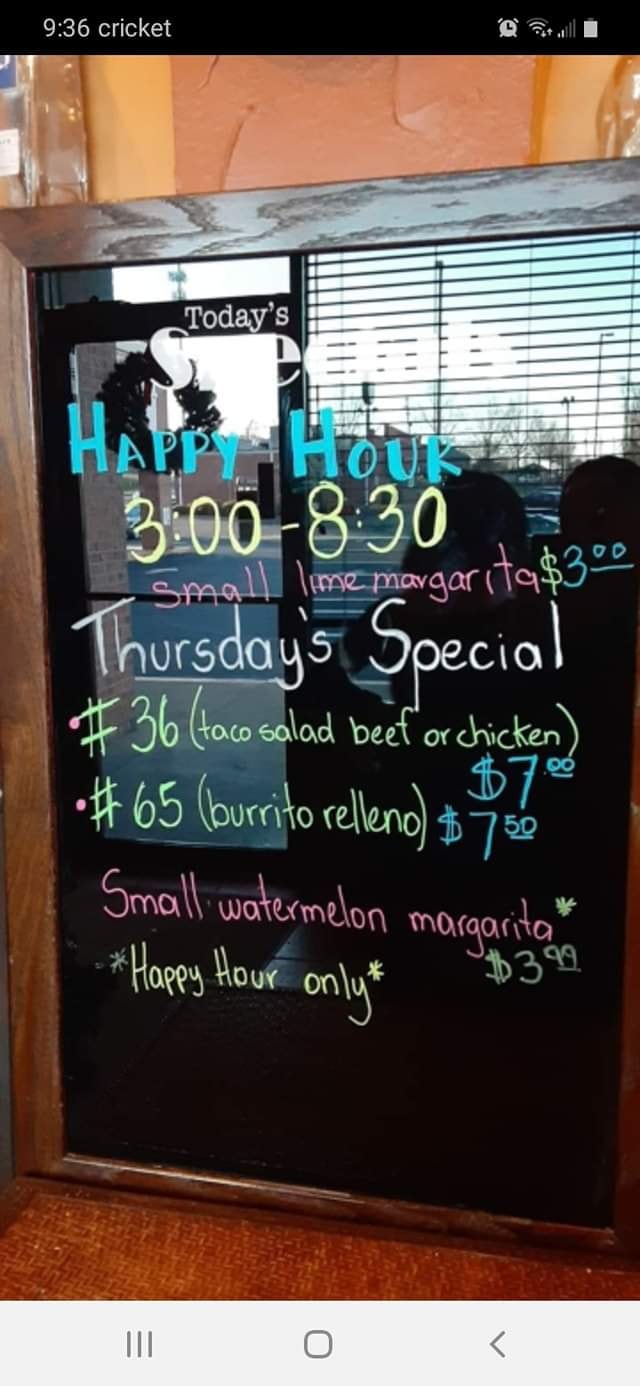 9:36 cricket
Today's
Specials
HAPPY HOUR
3:00-8:30
small lime margarita $3.00
Thursday's Special
•# 36 (taco salad beef or chicken)
$7.00
•# 65 (burrito relleno) $7.50
Small watermelon margarita*
$3.99
*Happy Hour only*